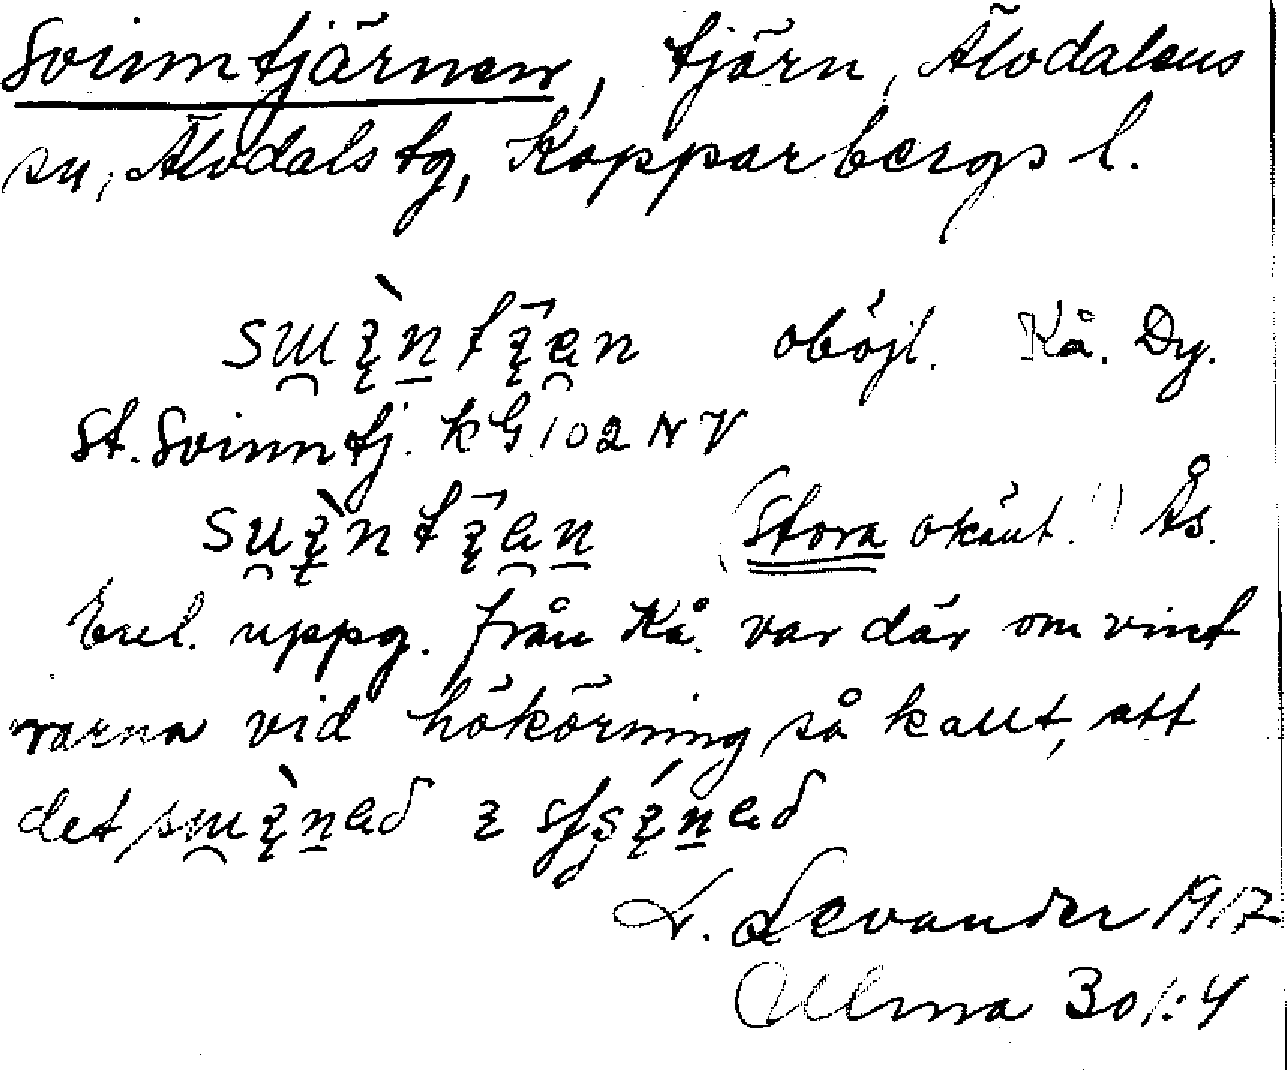 Svinntjärnen, tjärn, Älvdalens
sn, Älvdals tg, Kopparbergs l.
oböjl. Kå. Dy.
St. Svinntj. kG 102 NV
(Stora okänt!) Ås.
Enl. uppg. från Kå. var där om vint
rarna vid hökörning så kallt, att
det
L. Levander 1917
Ulma 301:4